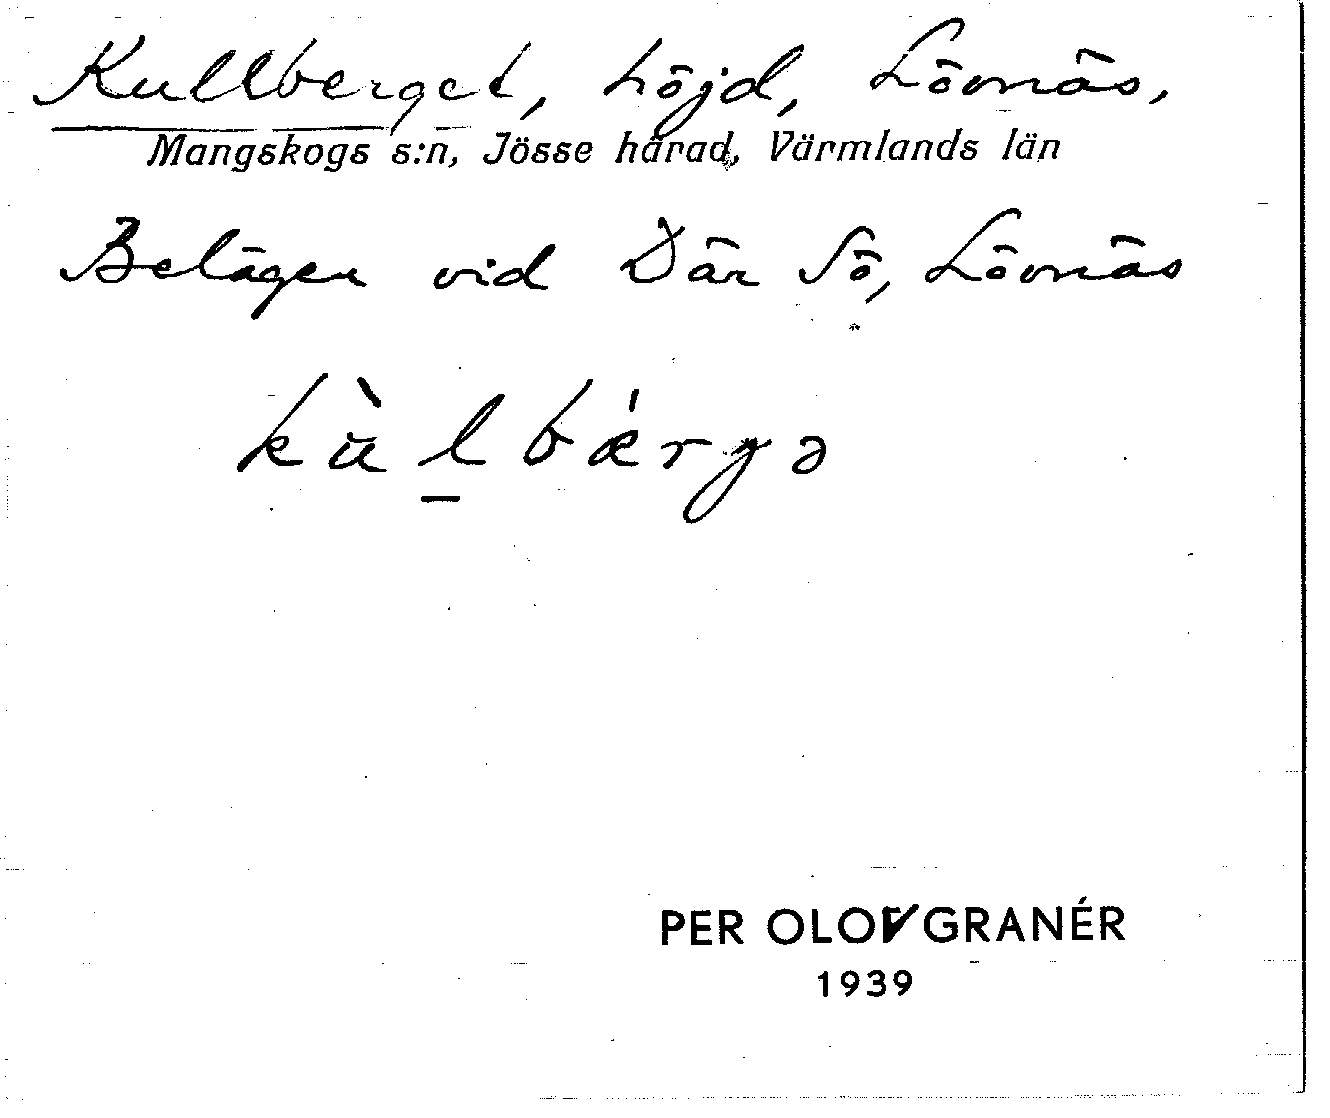 Kullberget, höjd, Lövnäs,
Mangskogs s:n, Jösse härad, Värmlands län
Belägen vid Där Sö, Lövnäs
kùl̲bǽrgə
PER OLOV GRANÉR
1939